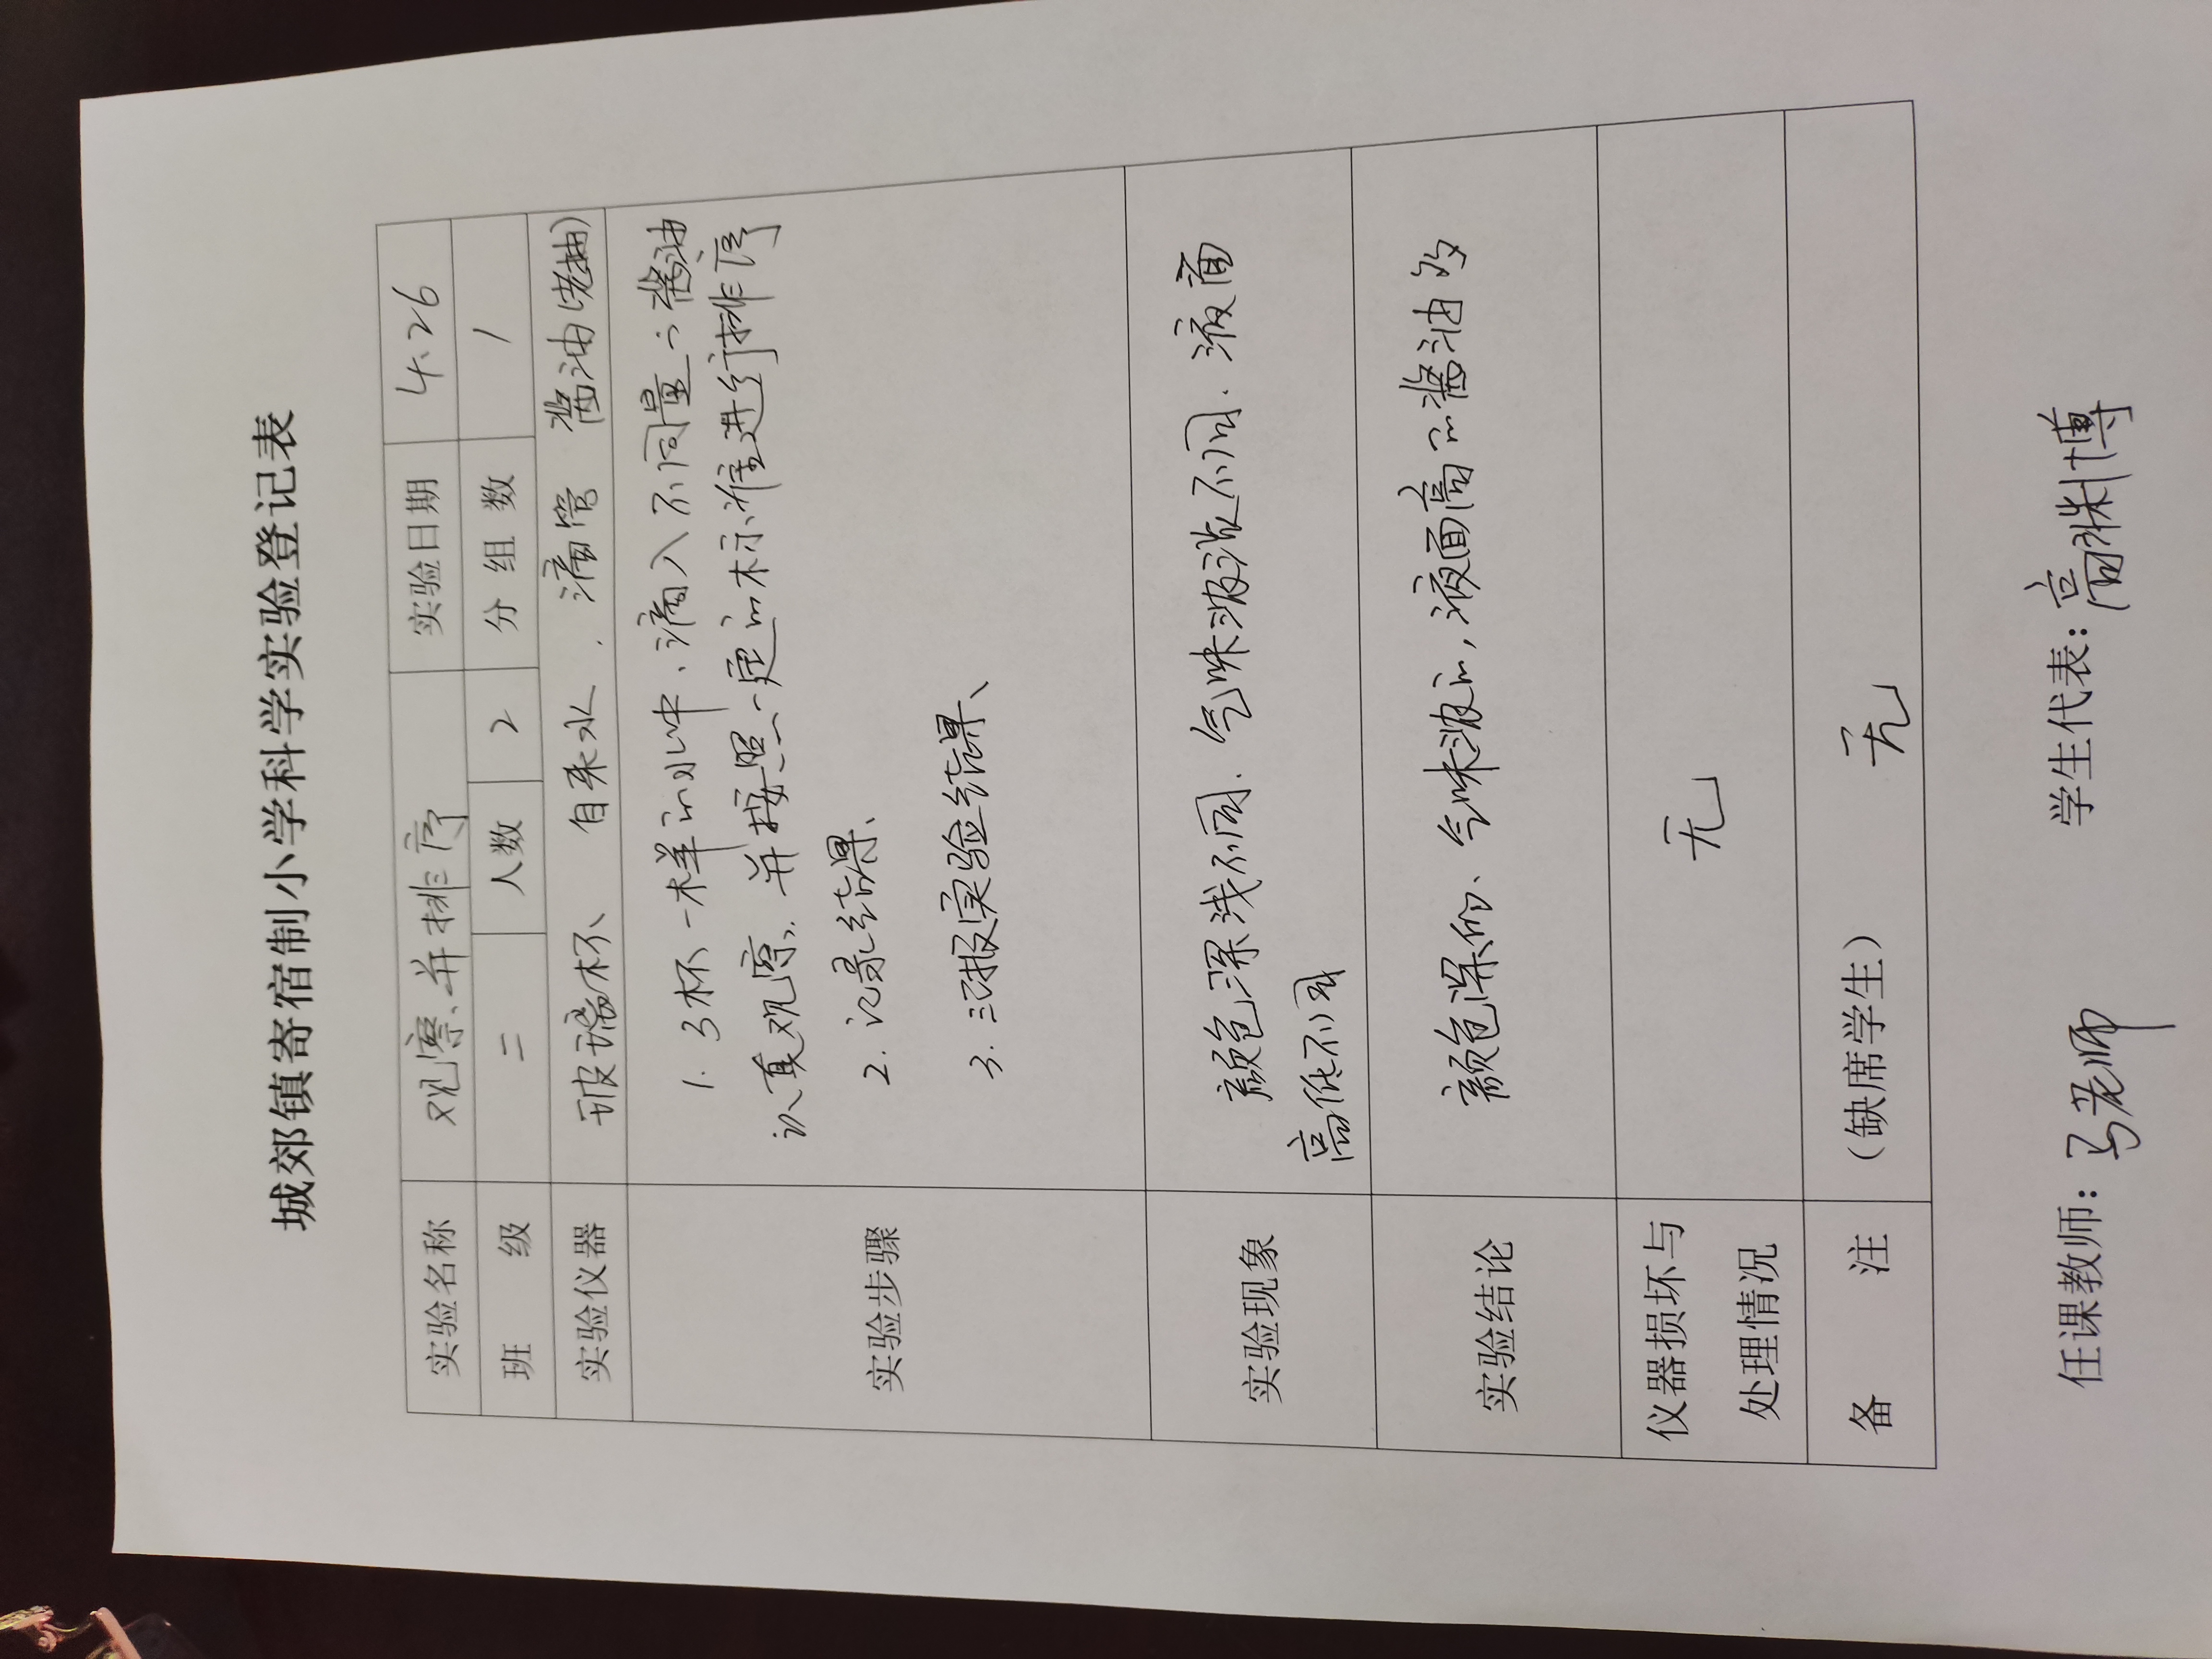 城郊镇寄宿制小学科学实验登记表
实验名称 观察、并排序 实验日期 4.26
班 级 二 人数 2 分组数 1
实验仪器 玻璃杯、自来水、滴管 酱油(老抽)
实验步骤
1. 3杯一样的水中、滴入不同量的酱油
认真观察,并按照一定的标准进行排序
2. 记录结果、
3. 汇报实验结果、
实验现象
颜色深浅不同、气味浓淡不同、液面
高低不同
实验结论
颜色深的、气味浓的,液面高的酱油多
仪器损坏与
处理情况
无
备 注 (缺席学生) 无
任课教师:马老师 学生代表:高博